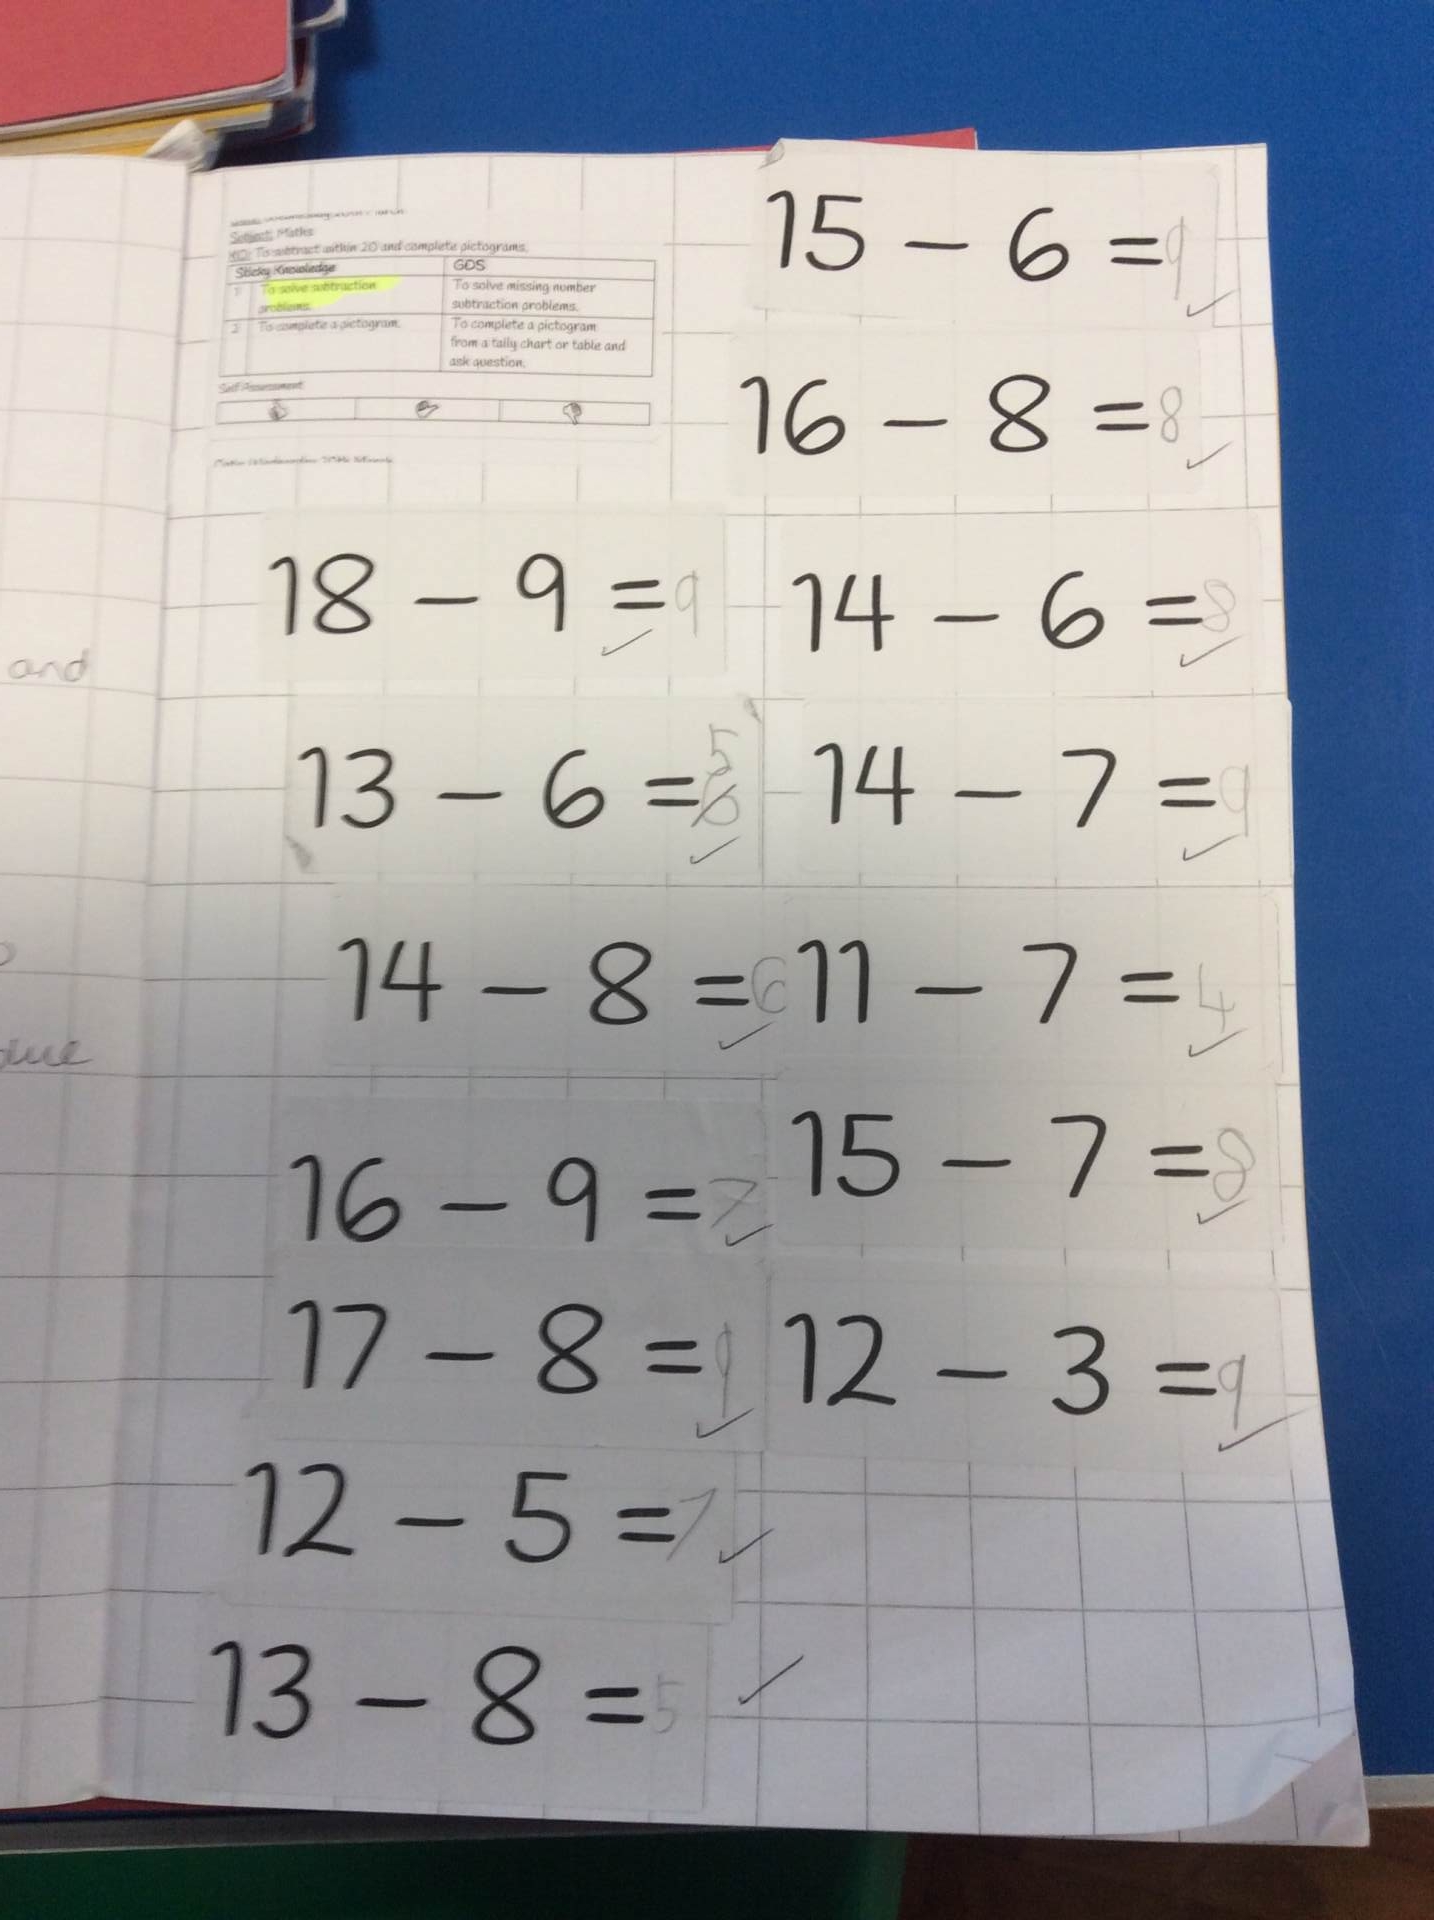 Subject: Maths
To subtract within 20 and complete pictograms.
Sticky Knowledge GDS
1 To solve subtraction problems. To solve missing number
subtraction problems.
2 To complete a pictogram. To complete a pictogram
from a tally chart or table and
ask question.
Self Assessment
15 - 6 = 9
16 - 8 = 8
18 - 9 = 9
14 - 6 = 8
13 - 6 = 5
14 - 7 = 9
14 - 8 = 6
11 - 7 = 4
16 - 9 = 7
15 - 7 = 8
17 - 8 = 9
12 - 3 = 9
12 - 5 = 7
13 - 8 = 5
and